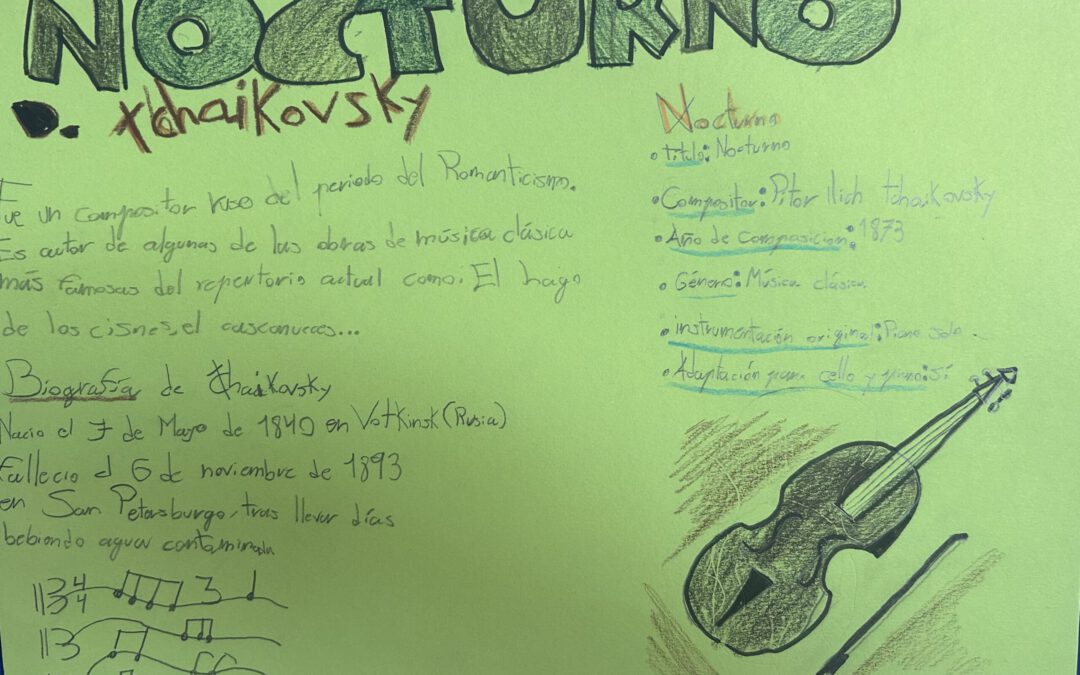 NOCTURNO
P. tchaikovsky
Fue un compositor ruso del periodo del Romanticismo.
Es autor de algunas de las obras de música clásica
más famosas del repertorio actual como: El lago
de los cisnes, el cascanueces...
Biografía de tchaikovsky
Nacio el 7 de Mayo de 1840 en Votkinsk (Rusia)
Fallecio el 6 de noviembre de 1893
en San Petersburgo, tras llevar días
bebiendo agua contaminada
Nocturno
• título: Nocturno
• Compositor: Pitor Ilich tchaikovsky
• Año de Composicion: 1873
• Género: Música clásica
• instrumentación original: Piano solo.
• Adaptación para cello y piano: Sí
3/4
3